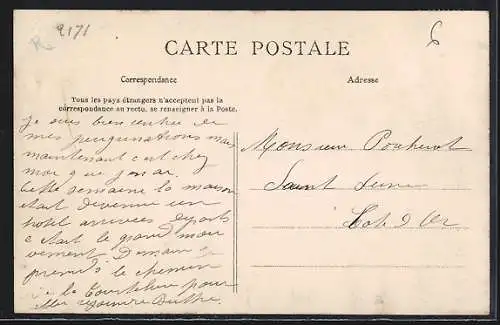 9171
6
CARTE POSTALE
Correspondance
Adresse
Tous les pays étrangers n'acceptent pas la
correspondance au recto, se renseigner à la Poste.
Je suis bien rentrée de
mes pérégrinations mais
maintenant c'est chez
moi que
Cette semaine la maison
était devenue un
hôtel arrivées départs
c était le grand mou
vement. Demain je
prendrai le chemin
de la pour
aller rejoindre
Monsieur
Saint
Cote d Or